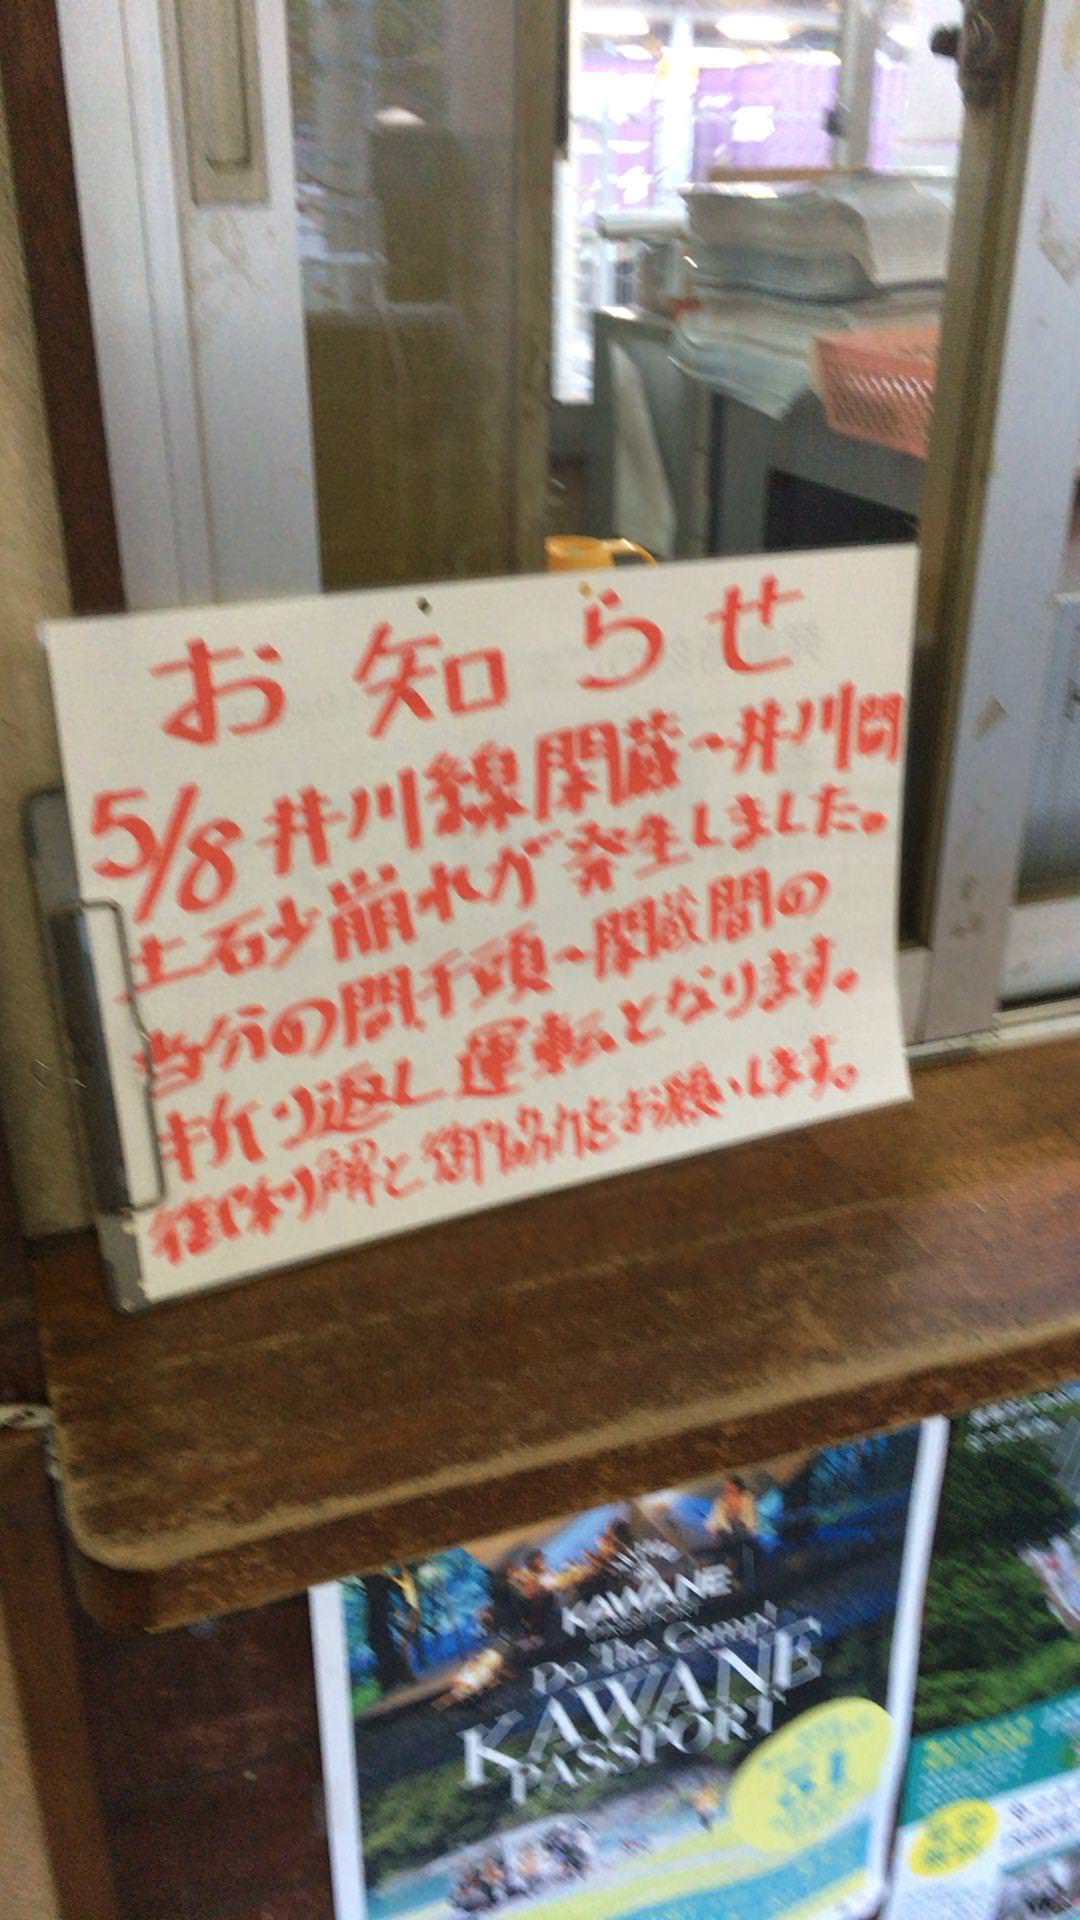 お知らせ
5/8 井川線閑蔵~井川間
土石砂崩れが発生しました。
当分の間、千頭~閑蔵間の
折り返し運転となります。
御理解と御協力をお願いします。
KAWANE
Do The Camp!
KAWANE
PASSPORT